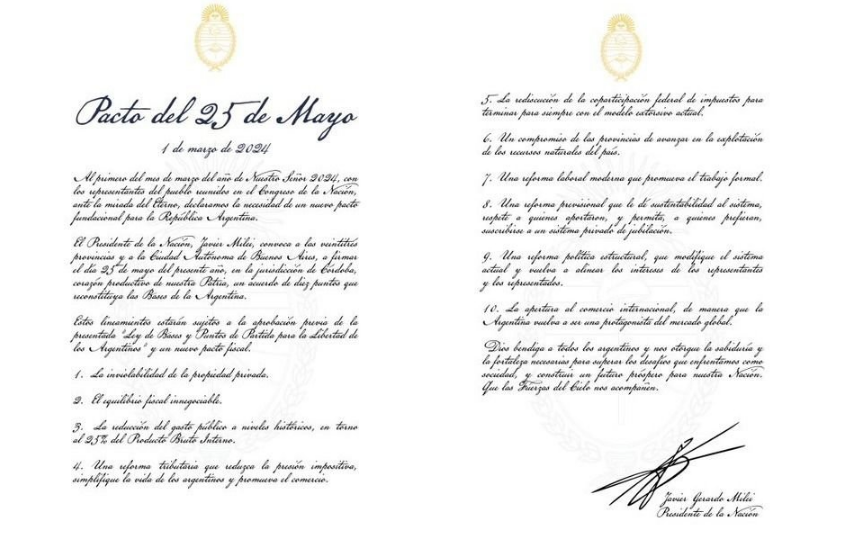 Pacto del 25 de Mayo
1 de marzo de 2024
Al primero del mes de marzo del año de Nuestro Señor 2024, con
los representantes del pueblo reunidos en el Congreso de la Nación,
ante la mirada del Eterno, declaramos la necesidad de un nuevo pacto
fundacional para la República Argentina.
El Presidente de la Nación, Javier Milei, convoca a las veintitrés
provincias y a la Ciudad Autónoma de Buenos Aires, a firmar
el día 25 de mayo del presente año, en la jurisdicción de Córdoba,
corazón productivo de nuestra Patria, un acuerdo de diez puntos que
reconstituya las Bases de la Argentina.
Estos lineamientos estarán sujetos a la aprobación previa de la
presentada "Ley de Bases y Puntos de Partida para la Libertad de
los Argentinos" y un nuevo pacto fiscal.
1. La inviolabilidad de la propiedad privada.
2. El equilibrio fiscal innegociable.
3. La reducción del gasto público a niveles históricos, en torno
al 25% del Producto Bruto Interno.
4. Una reforma tributaria que reduzca la presión impositiva,
simplifique la vida de los argentinos y promueva el comercio.
5. La rediscución de la coparticipación federal de impuestos para
terminar para siempre con el modelo extorsivo actual.
6. Un compromiso de las provincias de avanzar en la explotación
de los recursos naturales del país.
7. Una reforma laboral moderna que promueva el trabajo formal.
8. Una reforma previsional que le dé sustentabilidad al sistema,
respete a quienes aportaron, y permita, a quienes prefieran,
suscribirse a un sistema privado de jubilación.
9. Una reforma política estructural, que modifique el sistema
actual y vuelva a alinear los intereses de los representantes
y los representados.
10. La apertura al comercio internacional, de manera que la
Argentina vuelva a ser una protagonista del mercado global.
Dios bendiga a todos los argentinos y nos otorgue la sabiduría y
la fortaleza necesarias para superar los desafíos que enfrentamos como
sociedad, y construir un futuro próspero para nuestra Nación.
Que las Fuerzas del Cielo nos acompañen.
Javier Gerardo Milei
Presidente de la Nación